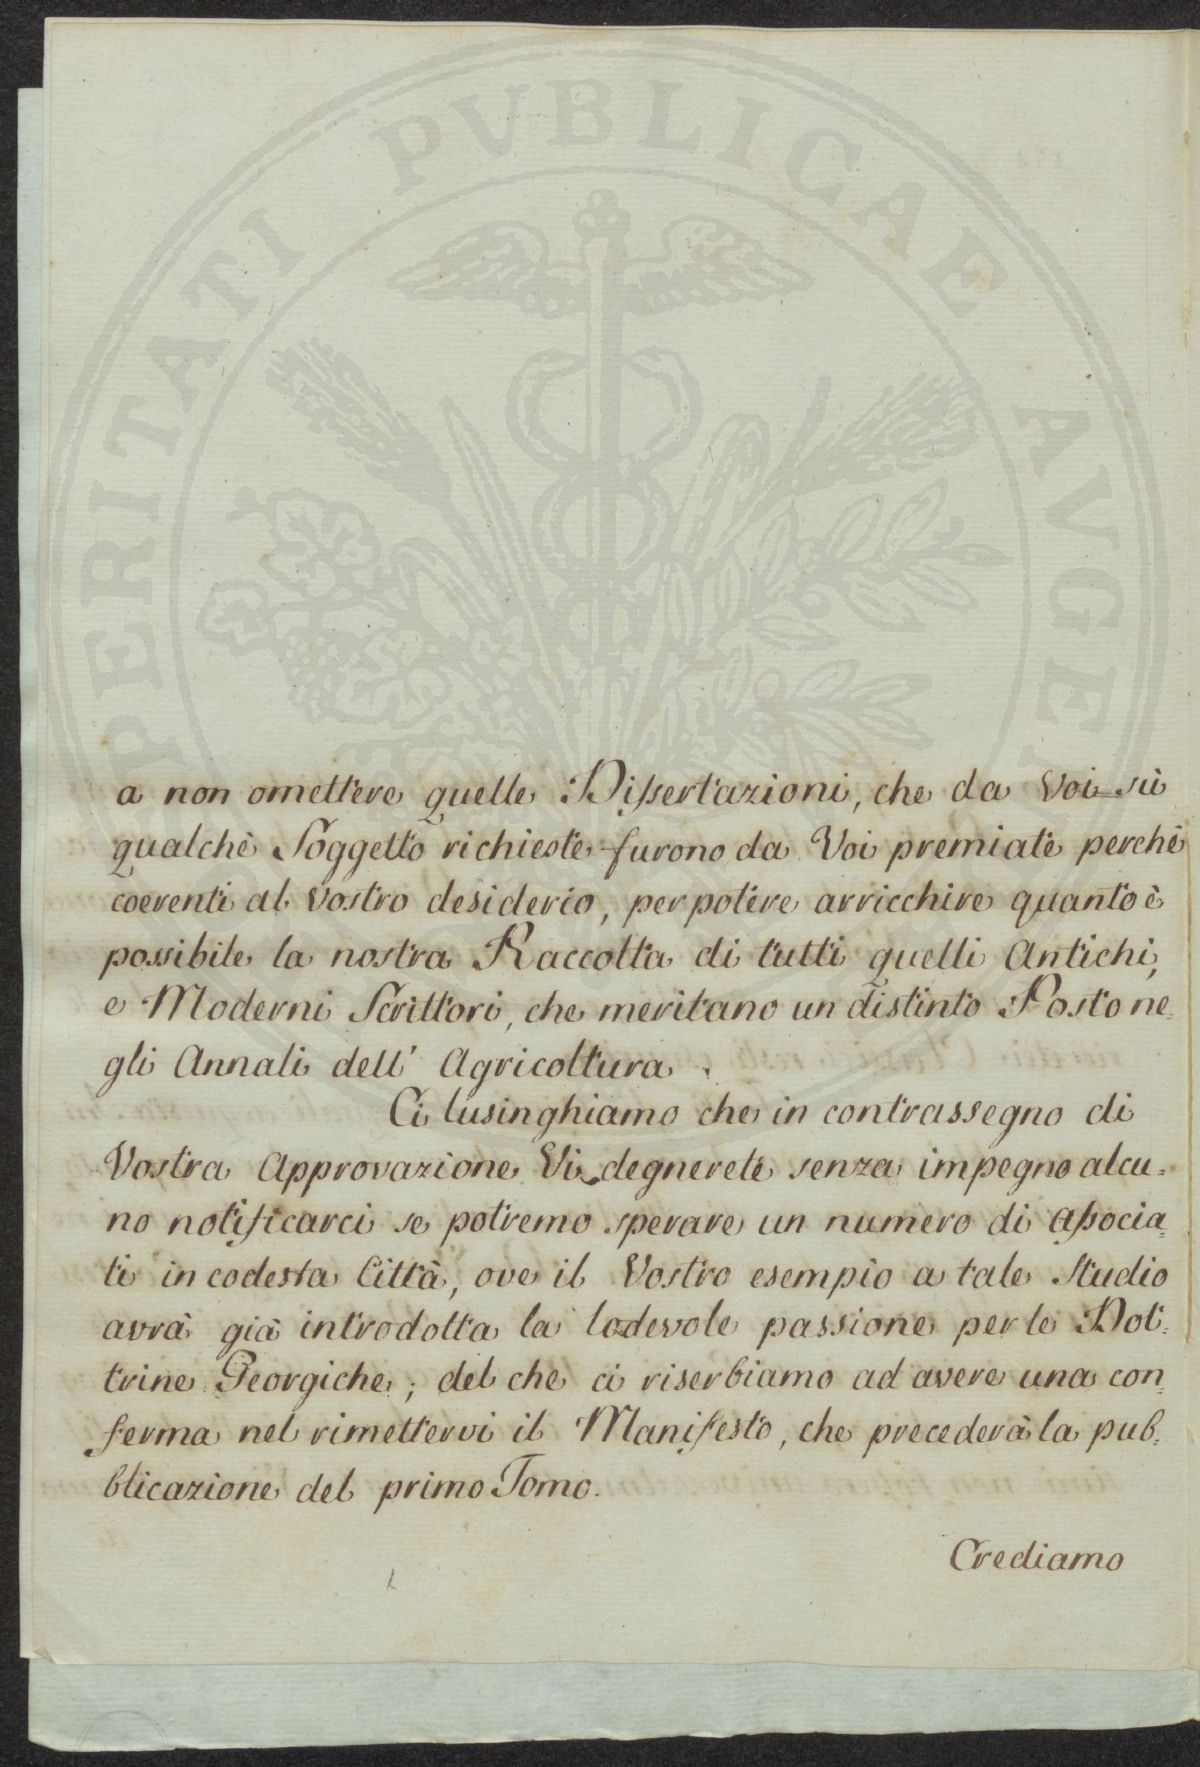 PERITATI PUBLICAE AUGE
a non omettere quelle Dissertazioni, che da Voi sù
qualchè Soggetto richieste furono da Voi premiate perchè
coerenti al Vostro desiderio, per potere arricchire quanto è
possibile la nostra Raccolta di tutti quelli Antichi,
e Moderni Scrittori, che meritano un distinto Posto ne=
gli Annali dell' Agricoltura.
Ci lusinghiamo che in contrassegno di
Vostra Approvazione Vi degnerete senza impegno alcu=
no notificarci se potremo sperare un numero di Associa=
ti in codesta Città, ove il Vostro esempio a tale Studio
avrà già introdotta la lodevole passione per le Dot=
trine Georgiche; del che ci riserbiamo ad avere una con=
ferma nel rimettervi il Manifesto, che precederà la pub=
blicazione del primo Tomo.
Crediamo